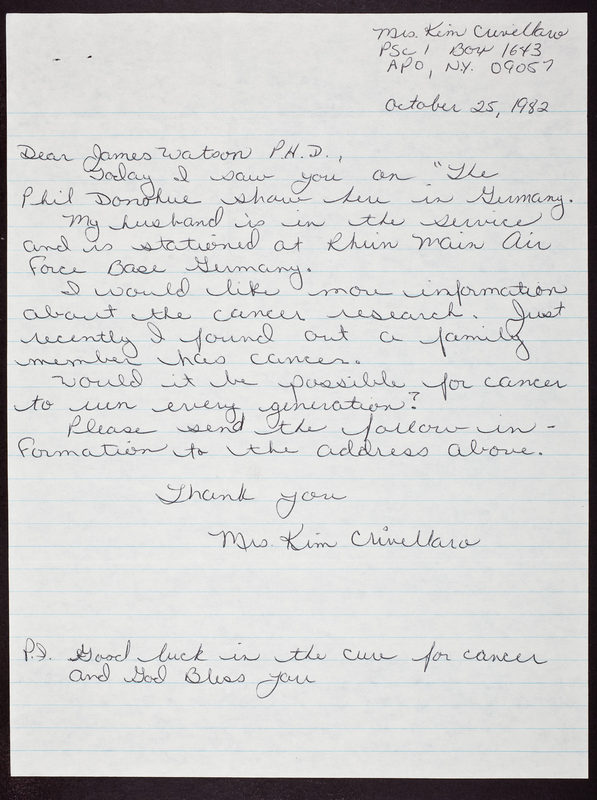 Mrs. Kim Crivellaro
PSC 1 Box 1643
APO, N.Y. 09057
October 25, 1982
Dear James Watson P.H.D.,
Today I saw you on "The
Phil Donohue show here in Germany.
My husband is in the service
and is stationed at Rhein Main Air
Force Base Germany.
I would like more information
about the cancer research. Just
recently I found out a family
member has cancer.
Would it be possible for cancer
to run every generation?
Please send the follow in-
formation to the address above.
Thank you
Mrs. Kim Crivellaro
P.S. Good luck in the cure for cancer
and God Bless you